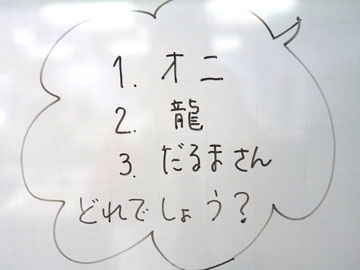 1. オニ
2. 龍
3. だるまさん
どれでしょう?